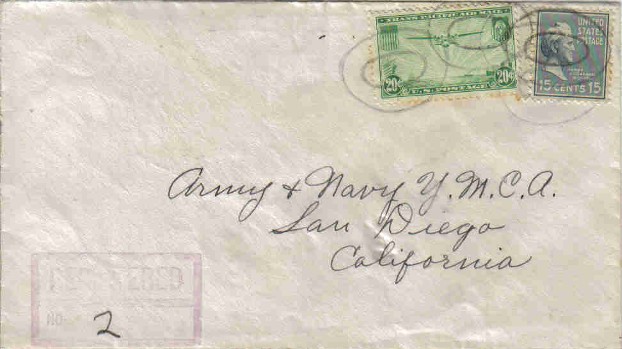 TRANS-PACIFIC AIR MAIL
20¢ 20¢
U.S. POSTAGE
UNITED
STATES
POSTAGE
15 CENTS 15
Army & Navy Y.M.C.A.
San Diego
California
NO.
2